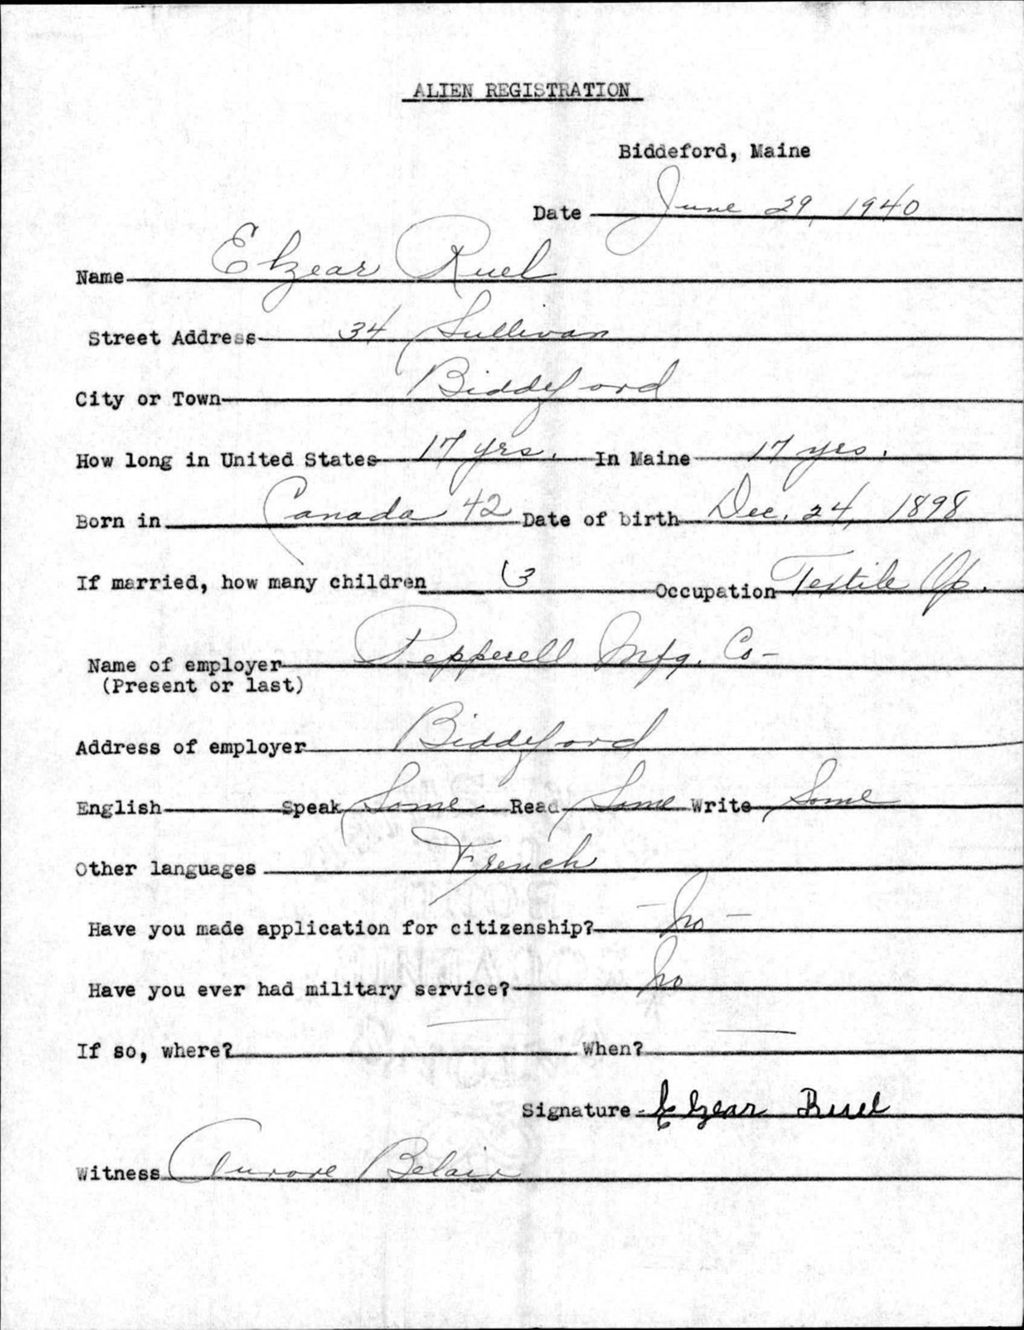 ALIEN REGISTRATION
Biddeford, Maine
Date June 29, 1940
Name Elzear Ruel
Street Address 34 Sullivan
City or Town Biddeford
How long in United States 17 yrs. In Maine 17 yrs.
Born in Canada 42 Date of birth Dec. 24, 1898
If married, how many children 3 Occupation Textile Op.
Name of employer Pepperell Mfg. Co-
(Present or last)
Address of employer Biddeford
English Speak Some - Read Some Write Some
Other languages French
Have you made application for citizenship? - No -
Have you ever had military service? No
If so, where? When?
Signature - Elzear Ruel
Witness Aurore Belair